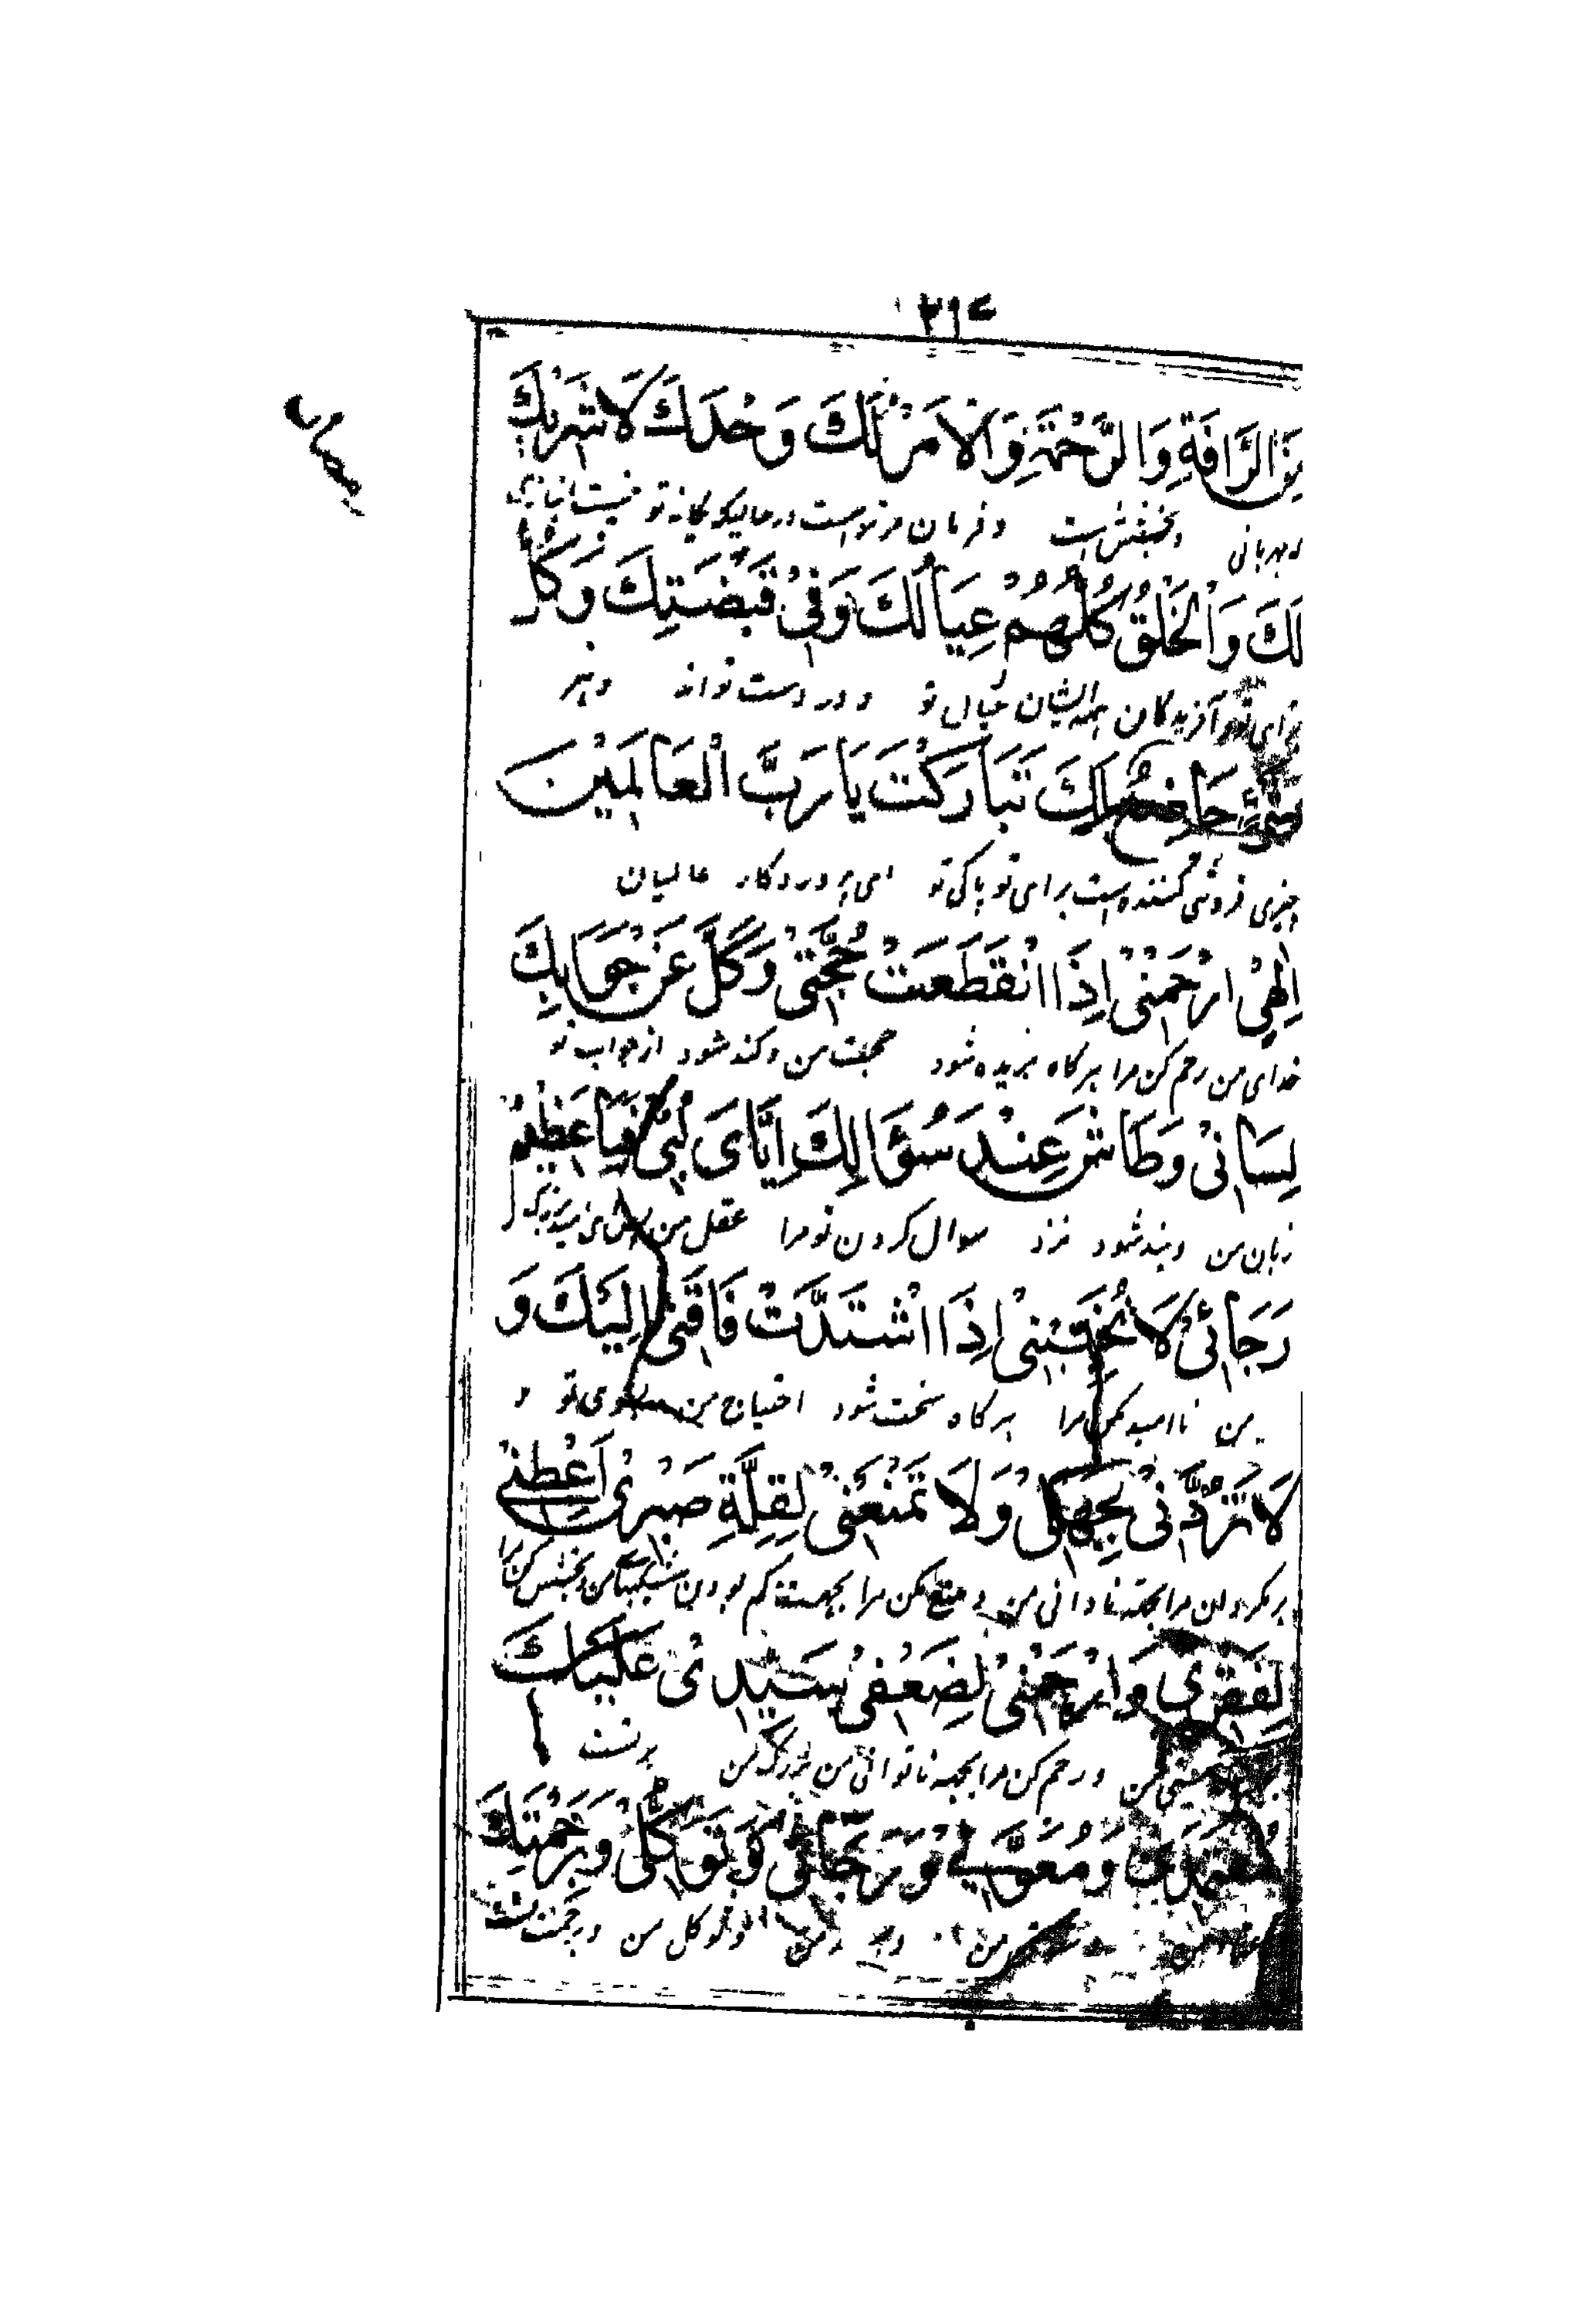 مِنَ الرَّافَةِ وَالرَّحْمَةِ وَالْاَمْرُ لَكَ وَحْدَكَ لَا شَرِیْكَ
ومهربانی وبخشش است وفرمان مر تراست در حالیکه یگانهٔ تو نیست انبازی
لَكَ وَالْخَلْقُ كُلُّهُمْ عِیَالُكَ وَفِیْ قَبْضَتِكَ وَكُلُّ
برای تو و آفریدگان همه ایشان عیال تو و در دست تواند و هر
شَیْءٍ خَاضِعٌ لَكَ تَبَارَكْتَ یَا رَبَّ الْعَالَمِیْنَ
چیزی فروتنی کننده است برای تو پاکی تو ای پروردگار عالمیان
اِلٰهِیْ ارْحَمْنِیْ اِذَا انْقَطَعَتْ حُجَّتِیْ وَكَلَّ عَنْ جَوَابِكَ
خدای من رحم کن مرا هرگاه بریده شود حجت من و کند شود از جواب تو
لِسَانِیْ وَطَاشَ عِنْدَ سُؤَالِكَ اِیَّایَ لُبِّیْ فَیَا عَظِیْمَ
زبان من و بند شود نزد سوال کردن تو مرا عقل من
رَجَائِیْ لَا تُخَیِّبْنِیْ اِذَا اشْتَدَّتْ فَاقَتِیْ اِلَیْكَ وَ
من ناامید مکن مرا هرگاه سخت شود احتیاج من بسوی تو و
لَا تَرُدَّنِیْ بِجَهْلِیْ وَلَا تَمْنَعْنِیْ لِقِلَّةِ صَبْرِیْ اَعْطِنِیْ
بر مگردان مرا بجهته نادانی من و منع مکن مرا بجهت کم بودن شکیبائی من بخشش کن مرا
لِفَقْرِیْ وَارْحَمْنِیْ لِضَعْفِیْ سَیِّدِیْ عَلَیْكَ
من و رحم کن مرا بجهه ناتوانی من بزرگ من بر تست
مُعْتَمَدِیْ وَمُعَوَّلِیْ وَرَجَائِیْ وَتَوَكُّلِیْ وَبِرَحْمَتِكَ
من و توکل من و برحمت تست